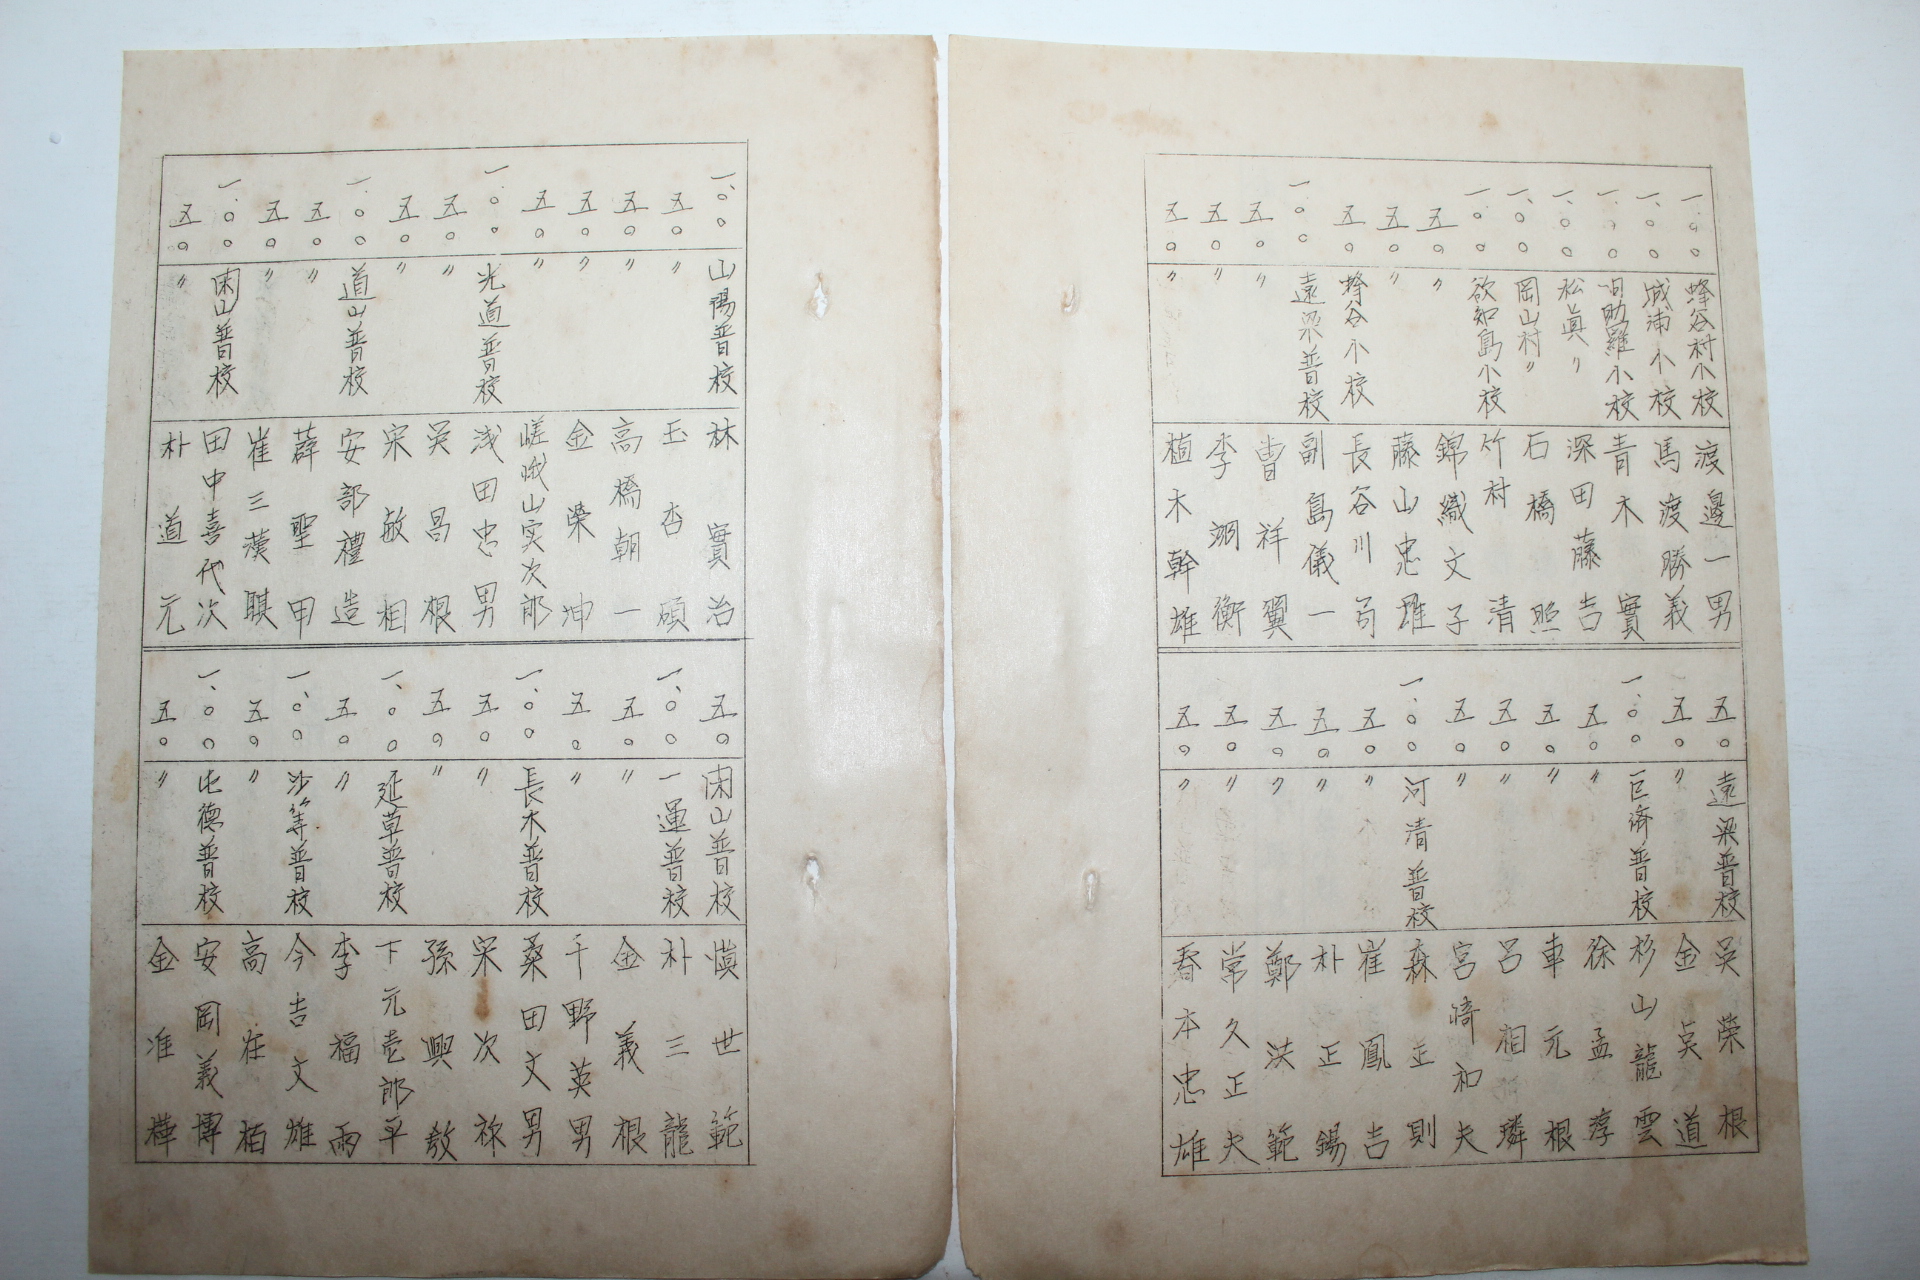 一.〇〇 蜂谷村小校 渡邊一男
一.〇〇 城浦小校 馬渡勝義
一.〇〇 旧助羅小校 青木實
一.〇〇 松真〃 深田藤吉
一.〇〇 岡山村〃 石橋照
一.〇〇 欲知島小校 竹村清
五〇 〃 錦織文子
五〇 〃 藤山忠雄
五〇 蜂谷小校 長谷川弓
一.〇〇 遠梁普校 副島儀一
五〇 〃 曺祥翼
五〇 〃 李翊衡
五〇 〃 植木幹雄
五〇 遠梁普校 吳榮根
五〇 〃 金英道
一.〇〇 巨済普校 杉山龍雲
五〇 〃 徐孟孝
五〇 〃 車元根
五〇 〃 呂相璘
五〇 〃 宮崎和夫
一.〇〇 河清普校 森正則
五〇 〃 崔鳳吉
五〇 〃 朴正錫
五〇 〃 鄭洪範
五〇 〃 常久正夫
五〇 〃 春本忠雄
一.〇〇 山陽普校 林實治
五〇 〃 玉杏碩
五〇 〃 高橋朝一
五〇 〃 金榮坤
五〇 〃 嵯峨山实次郎
一.〇〇 光道普校 浅田忠男
五〇 〃 吳昌根
五〇 〃 宋敏相
一.〇〇 道山普校 安部禮造
五〇 〃 薛聖甲
五〇 〃 崔三漢騏
一.〇〇 閑山普校 田中喜代次
五〇 〃 朴道元
五〇 閑山普校 慎世範
一.〇〇 一運普校 朴三龍
五〇 〃 金義根
五〇 〃 千野英男
一.〇〇 長木普校 桑田文男
五〇 〃 宋次祢
五〇 〃 孫興敎
一.〇〇 延草普校 下元壱郎平
五〇 〃 李福雨
一.〇〇 沙等普校 今吉文雄
五〇 〃 高在栢
一.〇〇 屯德普校 安岡義博
五〇 〃 金准樺